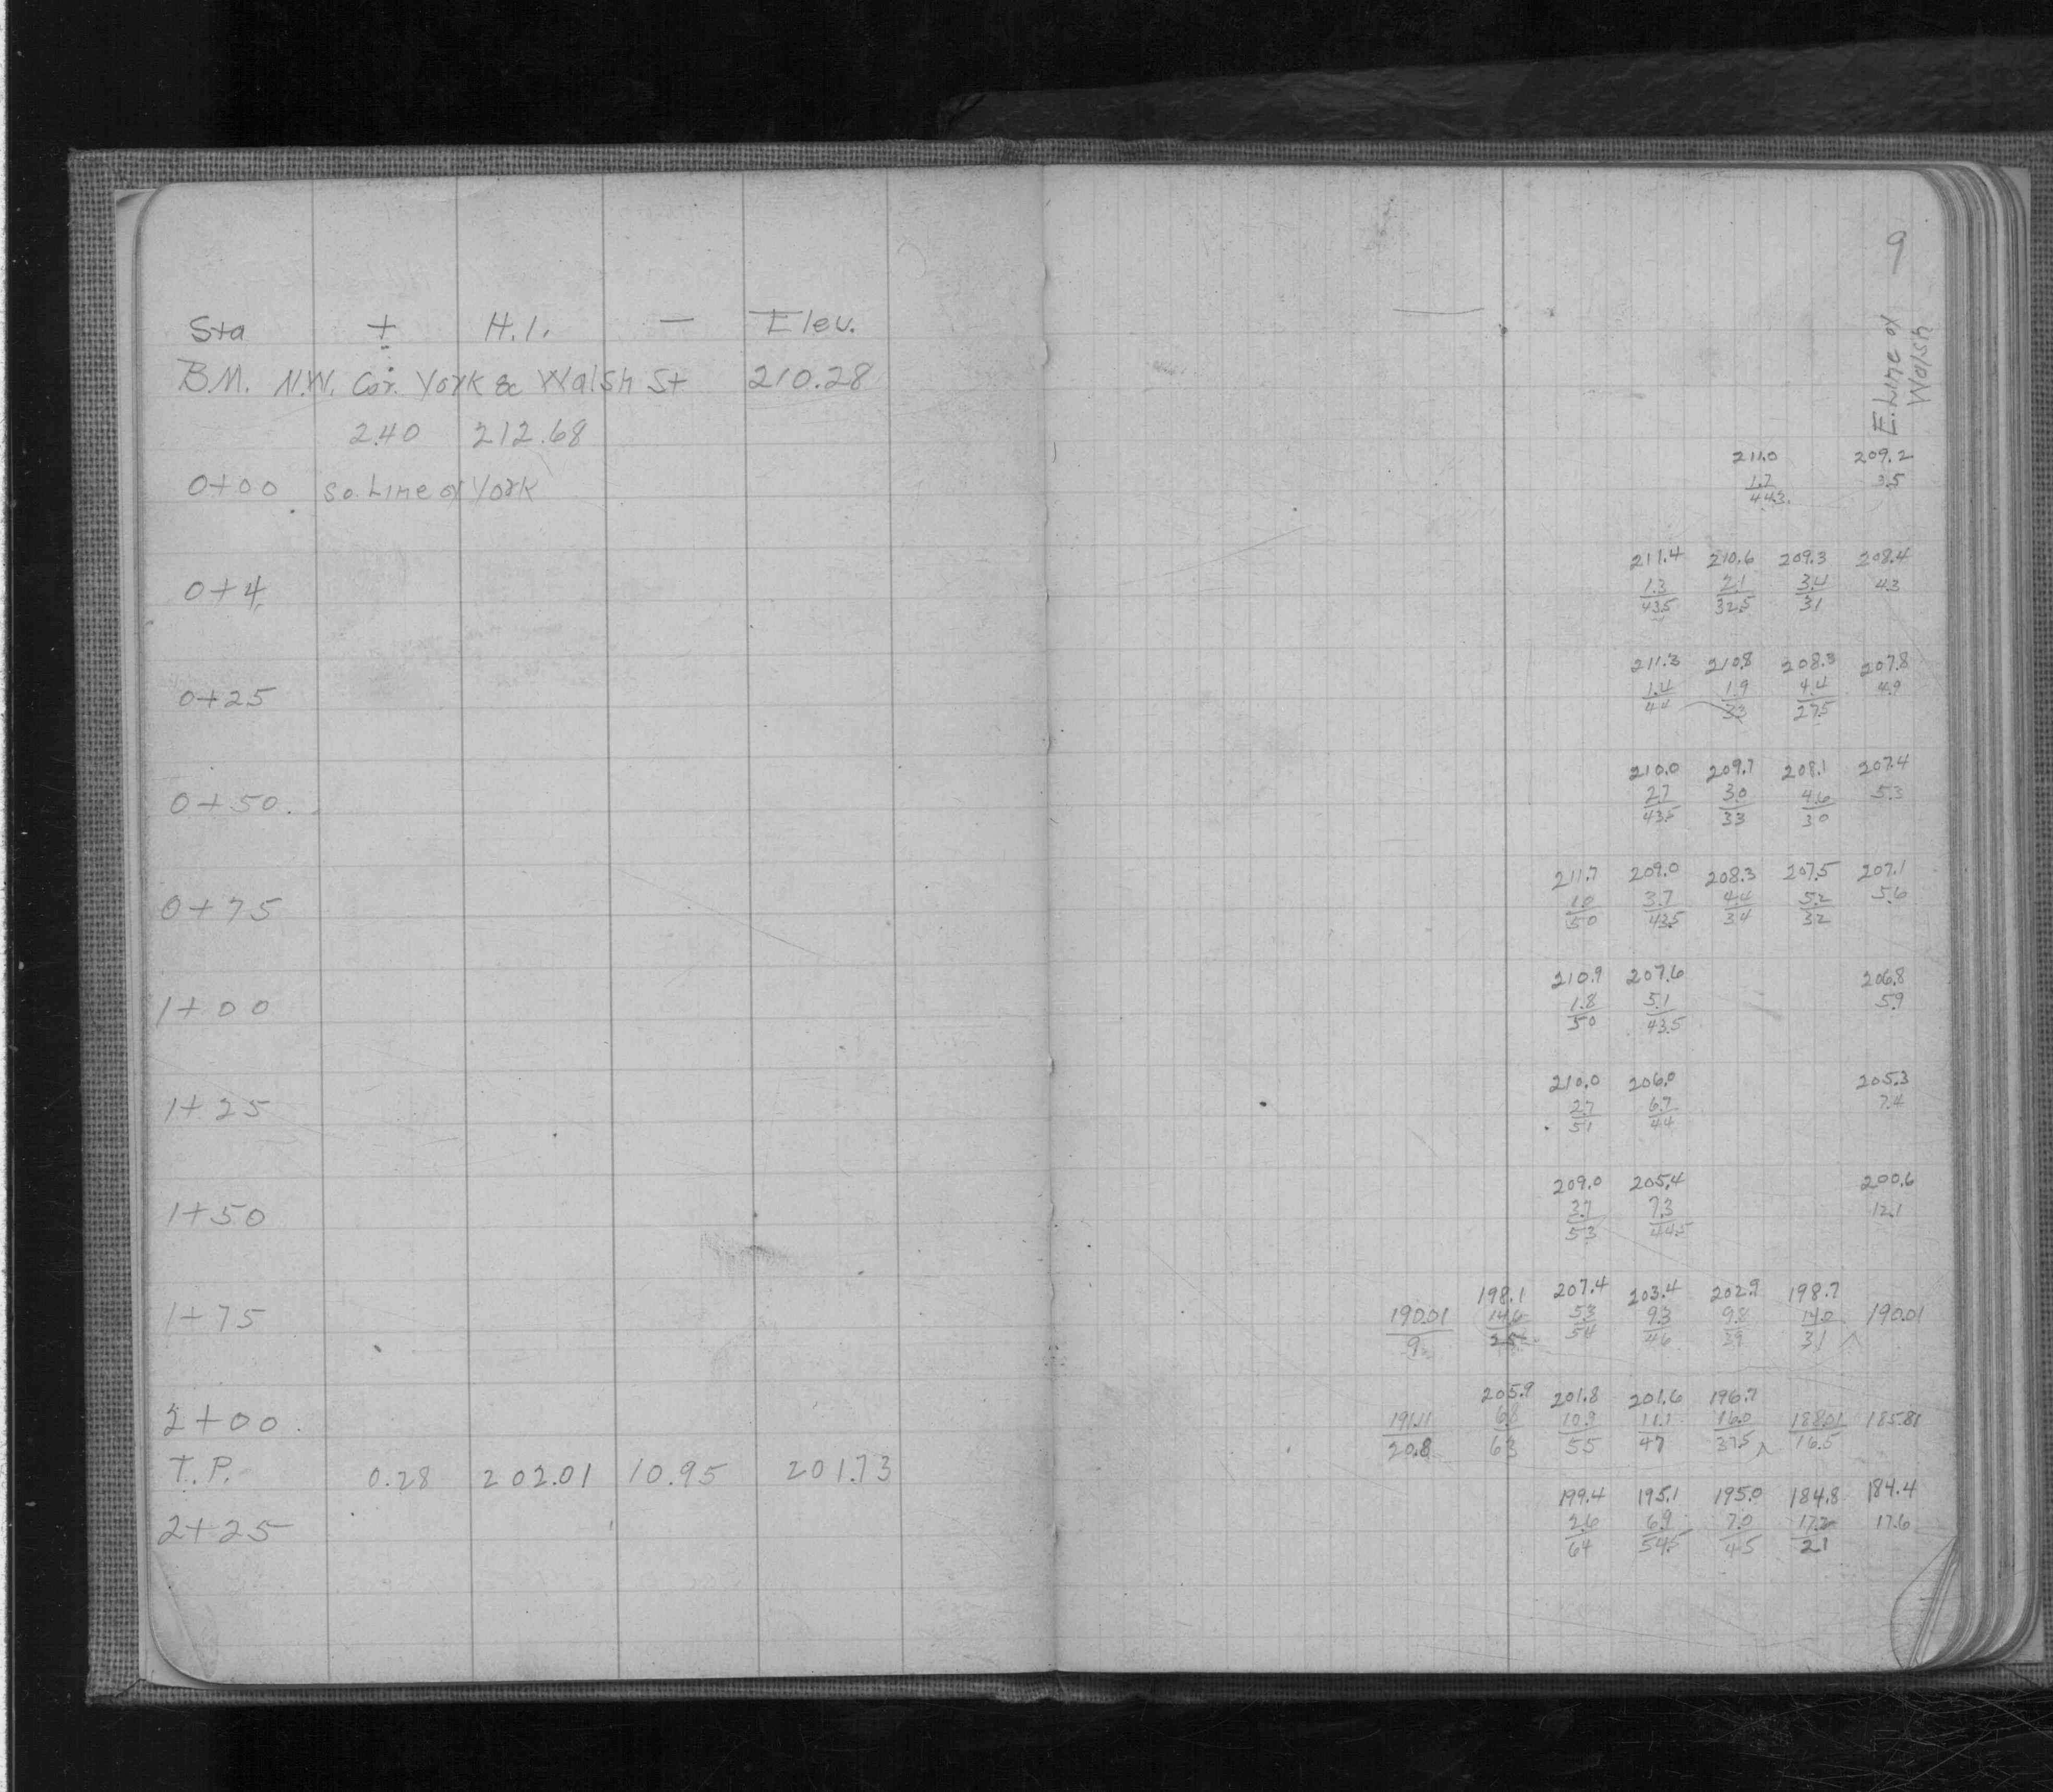 9
Sta + H.I. — Elev.
E. Line of
Walsh
B.M. N.W. Cor. York & Walsh St 210.28
2.40 212.68
211.0 209.2
0+00 So. Line of York 1.7 3.5
44.3
211.4 210.6 209.3 208.4
0+4 1.3 2.1 3.4 4.3
43.5 32.5 31
211.3 210.8 208.3 207.8
0+25 1.4 1.9 4.4 4.9
44 33 27.5
210.0 209.7 208.1 207.4
0+50. 2.7 3.0 4.6 5.3
43.5 33 30
211.7 209.0 208.3 207.5 207.1
0+75 1.0 3.7 4.4 5.2 5.6
50 43.5 34 32
210.9 207.6 206.8
1+00 1.8 5.1 5.9
50 43.5
210.0 206.0 205.3
1+25 2.7 6.7 7.4
51 44
209.0 205.4 200.6
1+50 3.7 7.3 12.1
53 44.5
198.1 207.4 203.4 202.9 198.7
1+75 190.01 14.6 5.3 9.3 9.8 14.0 190.01
9 25 54 46 39 31
205.9 201.8 201.6 196.7
2+00. 191.11 6.8 10.9 11.1 16.0 188.01 185.81
20.8 63 55 47 37.5 16.5
T.P. 0.28 202.01 10.95 201.73
199.4 195.1 195.0 184.8 184.4
2+25 2.6 6.9 7.0 17.2 17.6
64 54.5 45 21